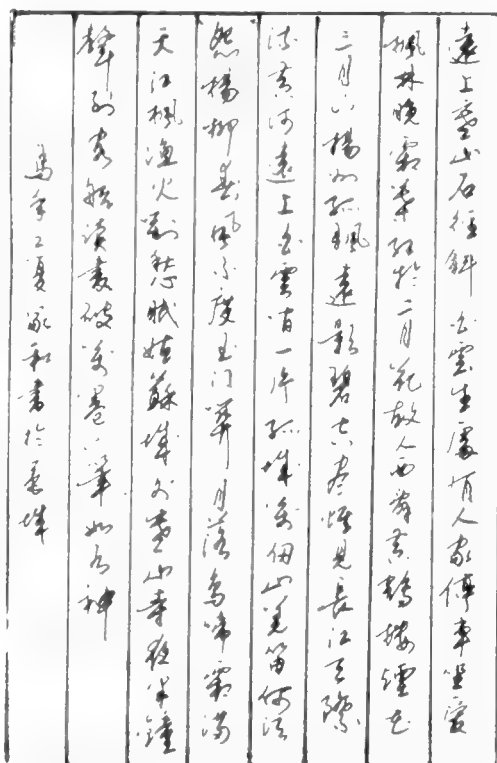 遠上寒山石徑斜白雲生處有人家停車坐愛
楓林晚霜葉紅於二月花故人西辭黃鶴樓煙花
三月下揚州孤帆遠影碧空盡惟見長江天際
流黃河遠上白雲间一片孤城萬仞山羌笛何須
怨楊柳春風不度玉门關月落烏啼霜满
天江楓漁火對愁眠姑蘇城外寒山寺夜半鐘
聲到客船讀書破萬卷下筆如有神
馬年之夏家和書於城